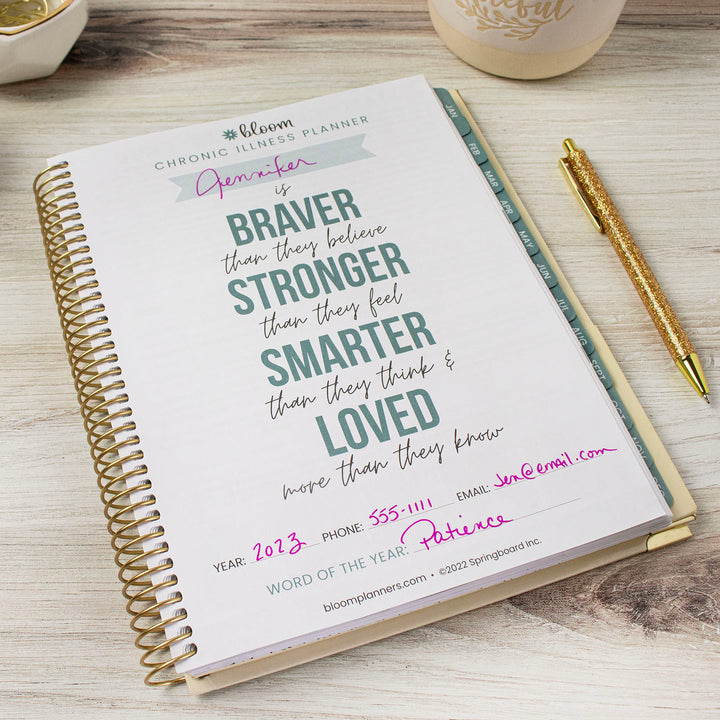 bloom
CHRONIC ILLNESS PLANNER
Jennifer
is
BRAVER
than they believe
STRONGER
than they feel
SMARTER
than they think &
LOVED
more than they know
YEAR: 2023 PHONE: 555-1111 EMAIL: Jen@email.com
WORD OF THE YEAR: Patience
bloomplanners.com • ©2022 Springboard Inc.
JAN
FEB
MAR
APR
MAY
JUN
JUL
AUG
SEPT
OCT
NOV